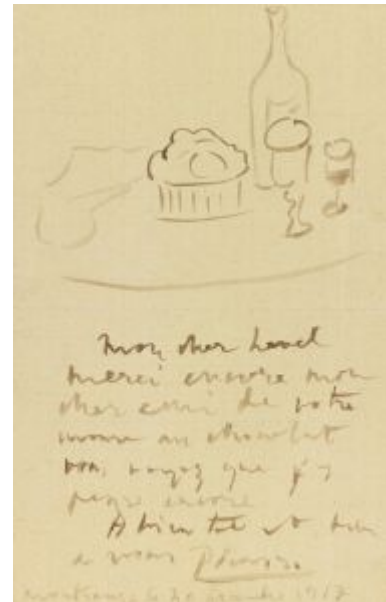 Mon cher Level
merci encore mon
cher ami de votre
mousse au chocolat
vous voyez que j'y
pense encore
A bientot et bien
a vous Picasso
Montrouge le 1917